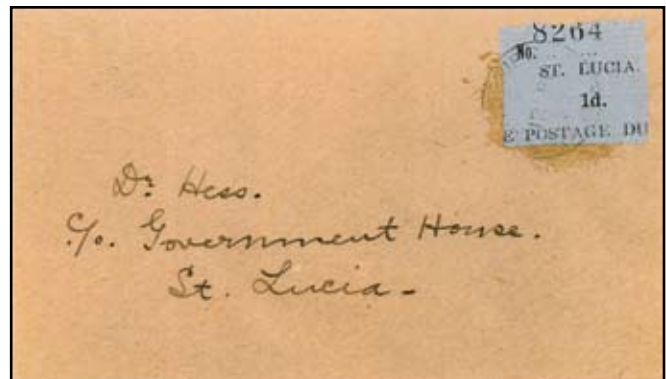 8264
No.
ST. LUCIA.
1d.
E POSTAGE DU
Dr. Hess.
C/o. Government House.
St. Lucia -